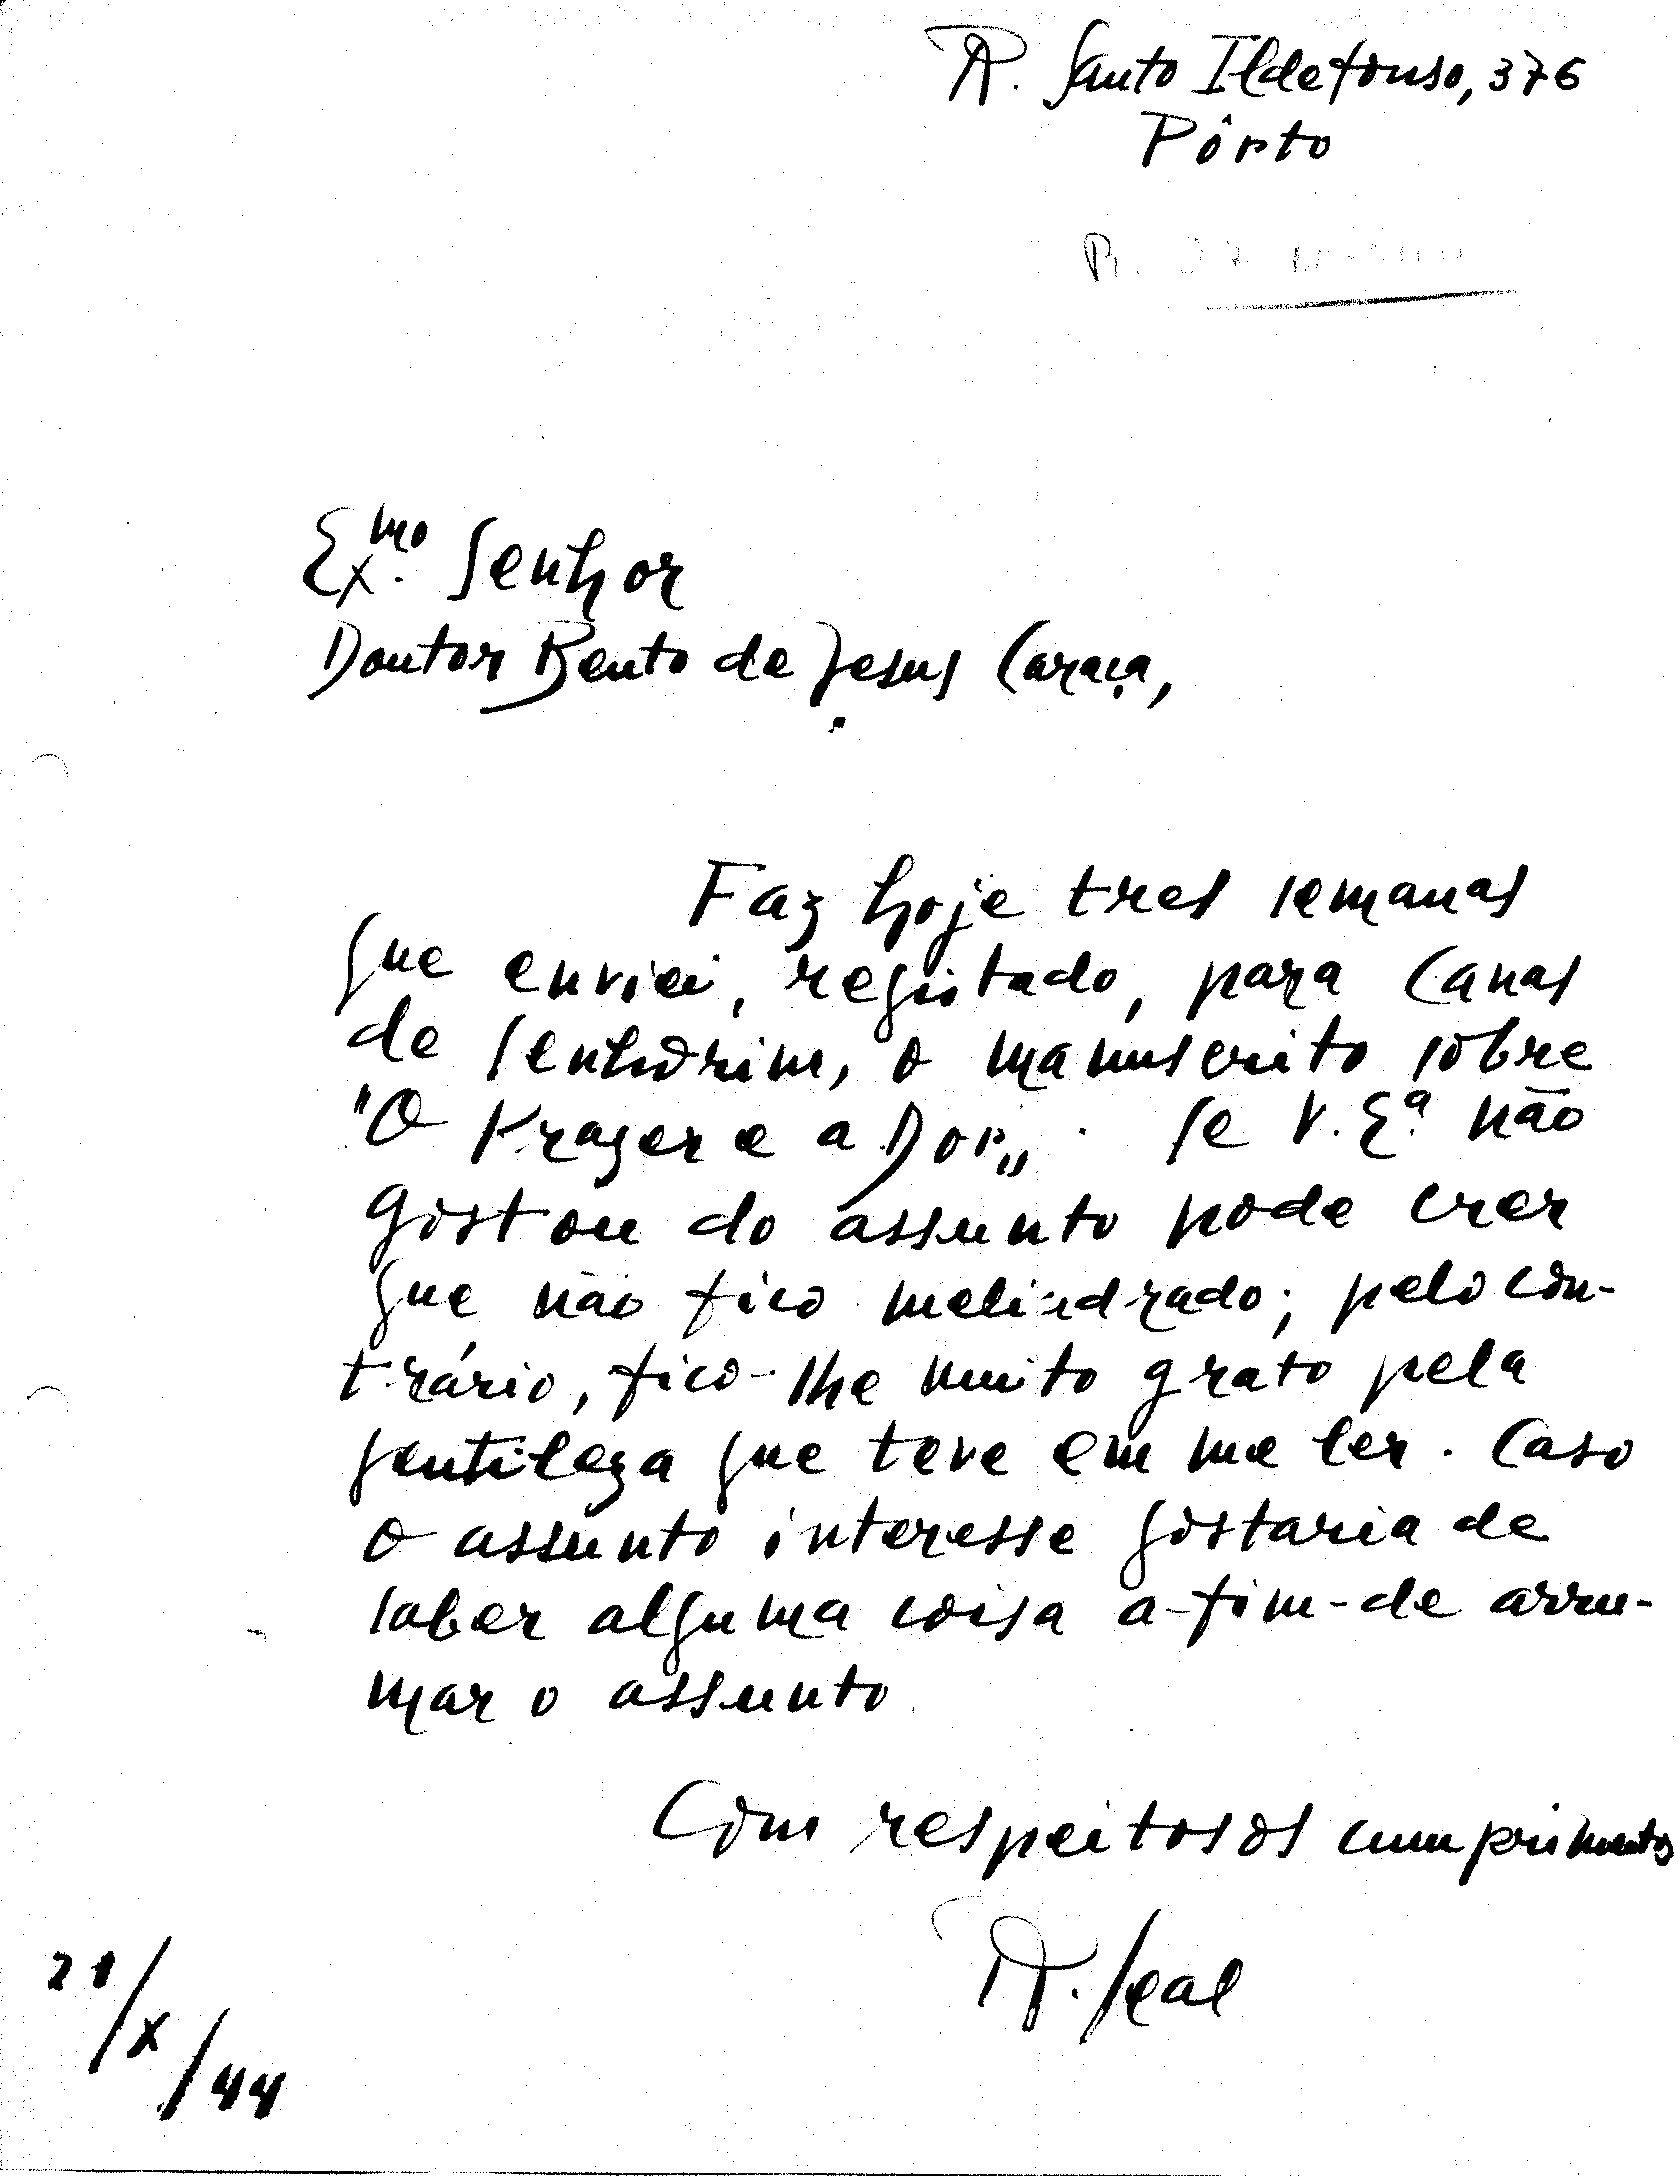 R. Santo Ildefonso, 376
Pôrto
R.
Ex.mo Senhor
Doutor Bento de Jesus Caraça,
Faz hoje tres semanas
que enviei, registado, para Canas
de Senhorim, o manuscrito sôbre
"O Prazer e a Dor„. Se V. Ex.ª não
gostou do assunto pode crer
que não fico melindrado; pelo con-
trário, fico-lhe muito grato pela
gentileza que teve em me ler. Caso
o assunto interesse gostaria de
saber alguma coisa a-fim-de arru-
mar o assunto
Com respeitosos cumprimentos
A. Seal
21/X/44